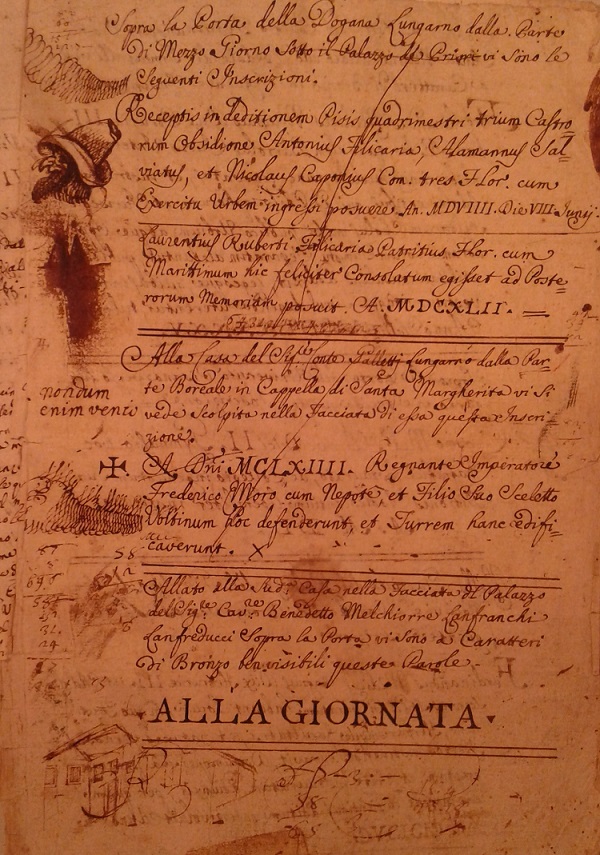 Sopra la Porta della Dogana Lungarno dalla Parte
di Mezzo Giorno Sotto il Palazzo de Priori vi sono le
Seguenti Inscrizioni.
Receptis in deditionem Pisis quadrimestri trium Castro
rum Obsidione Antonius Filicaria, Alamannus Sal-
viatus, et Nicolaus Caponius Com. tres Flor. cum
Exercitu Urbem ingressi posuere An. MDVIIII. Die VIII. Junij.
Laurentius Ruberti Filicaria Patritius Flor. cum
Marittimum hic feliciter Consolatum egisset ad Poste=
rorum Memoriam posuit. A. MDCXLII.
Alla Casa del Sig. Conte Galletti Lungarno dalla Par=
te Boreale in Cappella di Santa Margherita vi si
vede Scolpita nella Facciata di essa questa Inscri=
zione.
nondum
enim venis
✠ A. Dni MCLXIIII. Regnante Imperatore
Frederico Moro cum Nepote, et Filio Suo Sceletto
Voltinum hoc defenderunt, et Turrem hanc edifi=
caverunt. X
58
Allato alla Sud. Casa nella Facciata del Palazzo
del Sig.re Cav.re Benedetto Melchiorre Lanfranchi
Lanfreducci Sopra la Porta vi sono a Caratteri
di Bronzo ben visibili queste Parole.
ALLA GIORNATA